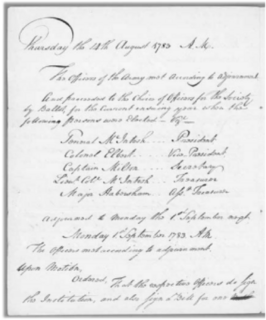 Thursday the 14th August 1783 A.M.
The Officers of the Army met according to adjournment
and proceeded to the Choice of Officers for the Society
by Ballot, for the Current ensuing year when the
following persons was elected
General McIntosh President
Colonel Elbert Vice President
Captain Milton Secretary
Lieut. Colo. McIntosh Treasurer
Major Habersham Asst. Treasurer
Adjourned to Monday the 1st September next.
Monday 1st September 1783 A.M.
The Officers met according to adjournment.
Upon Motion,
Ordered, That the respective Officers do sign
the Institution, and also sign a Bill for one